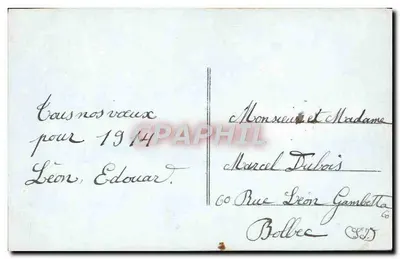 Tous nos vœux
pour 1914
Léon, Edouard.
Monsieur et Madame
Marcel Dubois
60 Rue Léon Gambetta
60
Bolbec (S.I)
CPAPHIL.COM